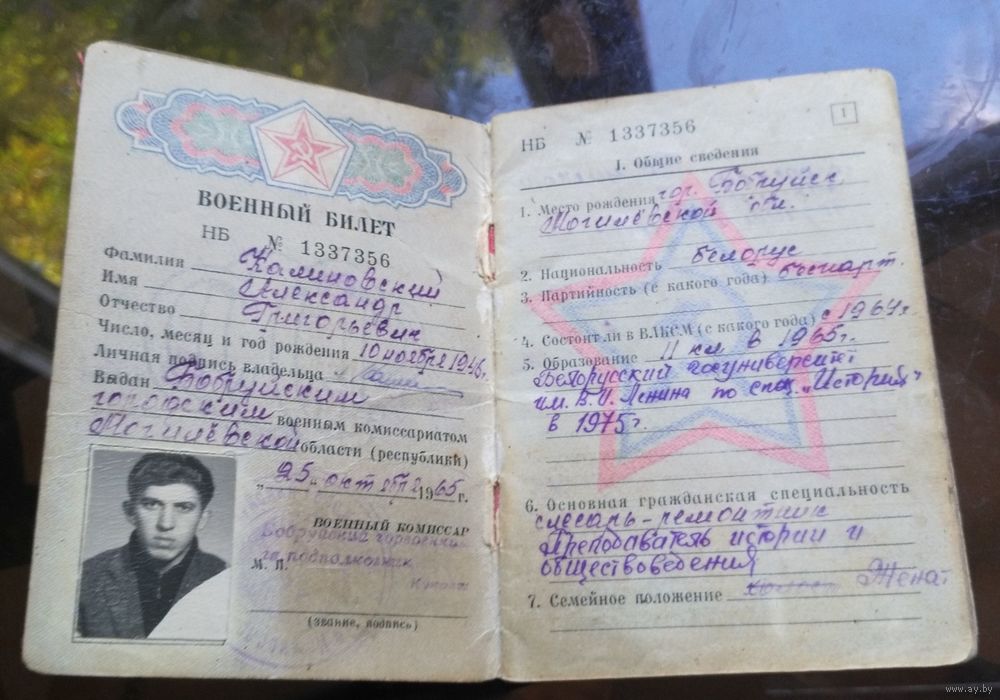 ВОЕННЫЙ БИЛЕТ
НБ № 1337356
Фамилия Калиновский
Имя Александр
Отчество Григорьевич
Число, месяц и год рождения 10 ноября 1946г.
Личная подпись владельца
Выдан Бобруйским
городским военным комиссариатом
Могилёвской области (республики)
„25„ октября 1965 г.
ВОЕННЫЙ КОМИССАР
Бобруйский горвоенком
М. П. подполковник
(звание, подпись)
НБ № 1337356
1
I. Общие сведения
1. Место рождения гор. Бобруйск
Могилевской обл.
2. Национальность белорус
3. Партийность (с какого года) беспарт.
4. Состоит ли в ВЛКСМ (с какого года) с 1964г
5. Образование 11 кл в 1965г.
Белорусский госуниверситет
им. В.И. Ленина по спец. „История"
в 1975г.
6. Основная гражданская специальность
слесарь-ремонтник
Преподаватель истории и
обществоведения
7. Семейное положение холост Женат
www.ay.by